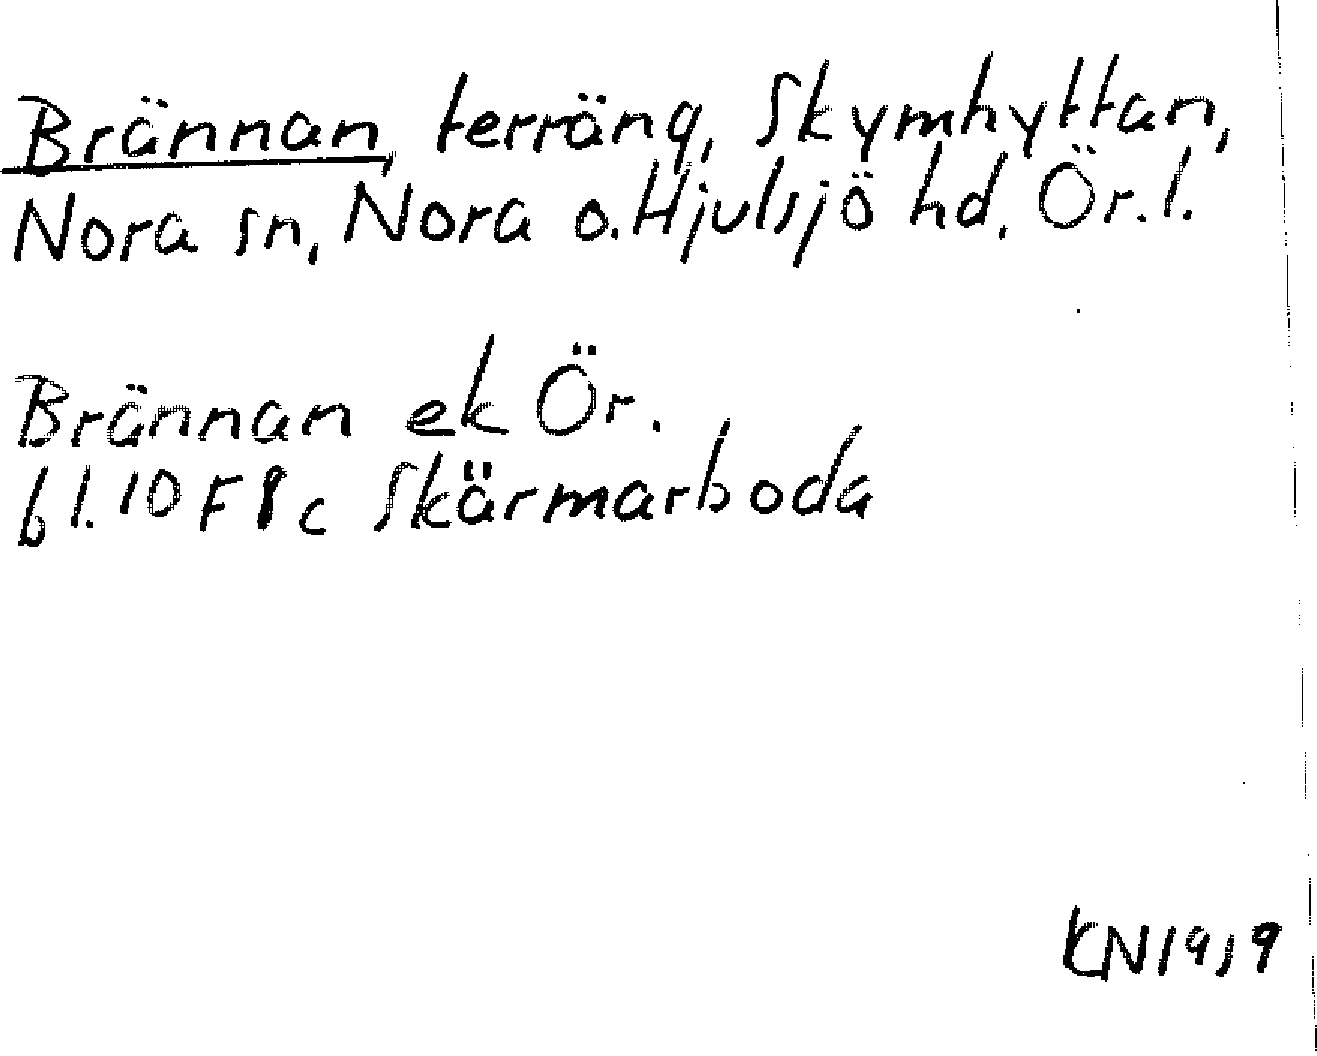 Brännan, terräng, Skymhyttan,
Nora sn, Nora o. Hjulsjö hd, Ör. l.
Brännan ek Ör.
bl. 10 F 8 c Skärmarboda